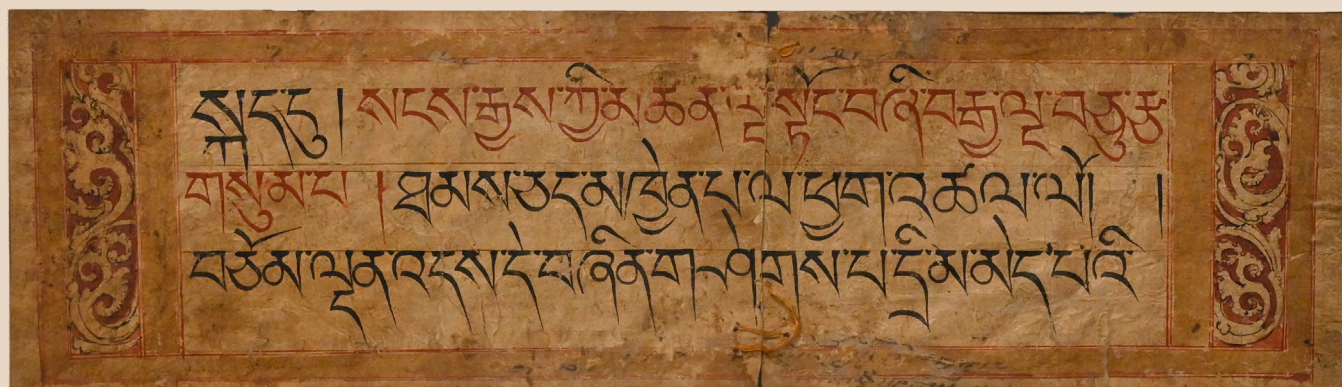 སྐད་དུ། སངས་རྒྱས་ཀྱི་མཚན་ལྔ་སྟོང་བཞི་བརྒྱ་ལྔ་བཅུ་རྩ་
གསུམ་པ། ཐམས་ཅད་མཁྱེན་པ་ལ་ཕྱག་འཚལ་ལོ། །
བཅོམ་ལྡན་འདས་དེ་བཞིན་གཤེགས་པ་དྲི་མ་མེད་པའི་